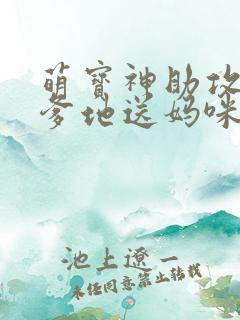 萌宝神助攻
爹地送妈咪
池上遼一
未经同意禁止转载